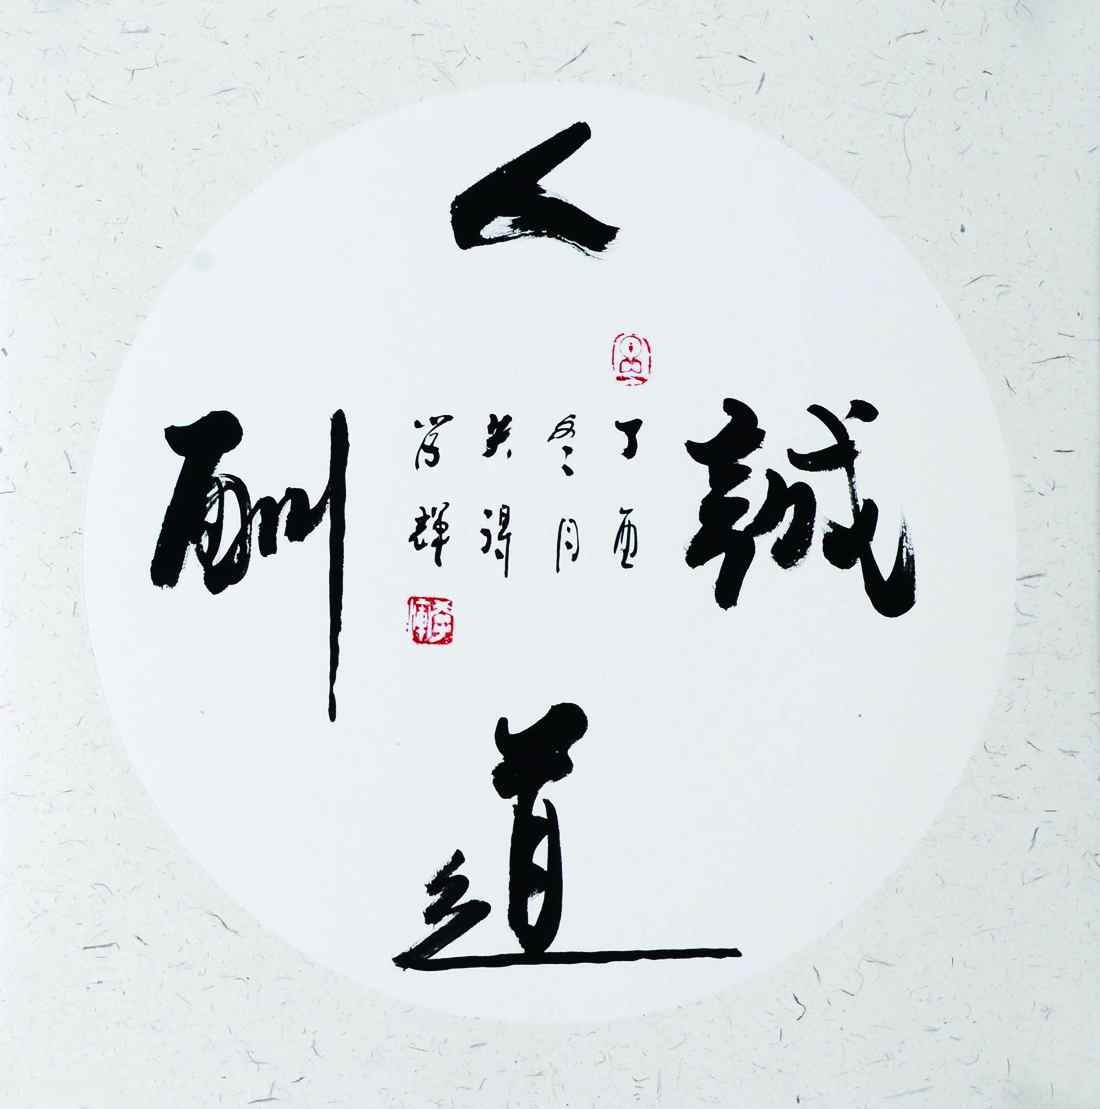 人
道
酬
誠
丁酉
冬月
得
輝